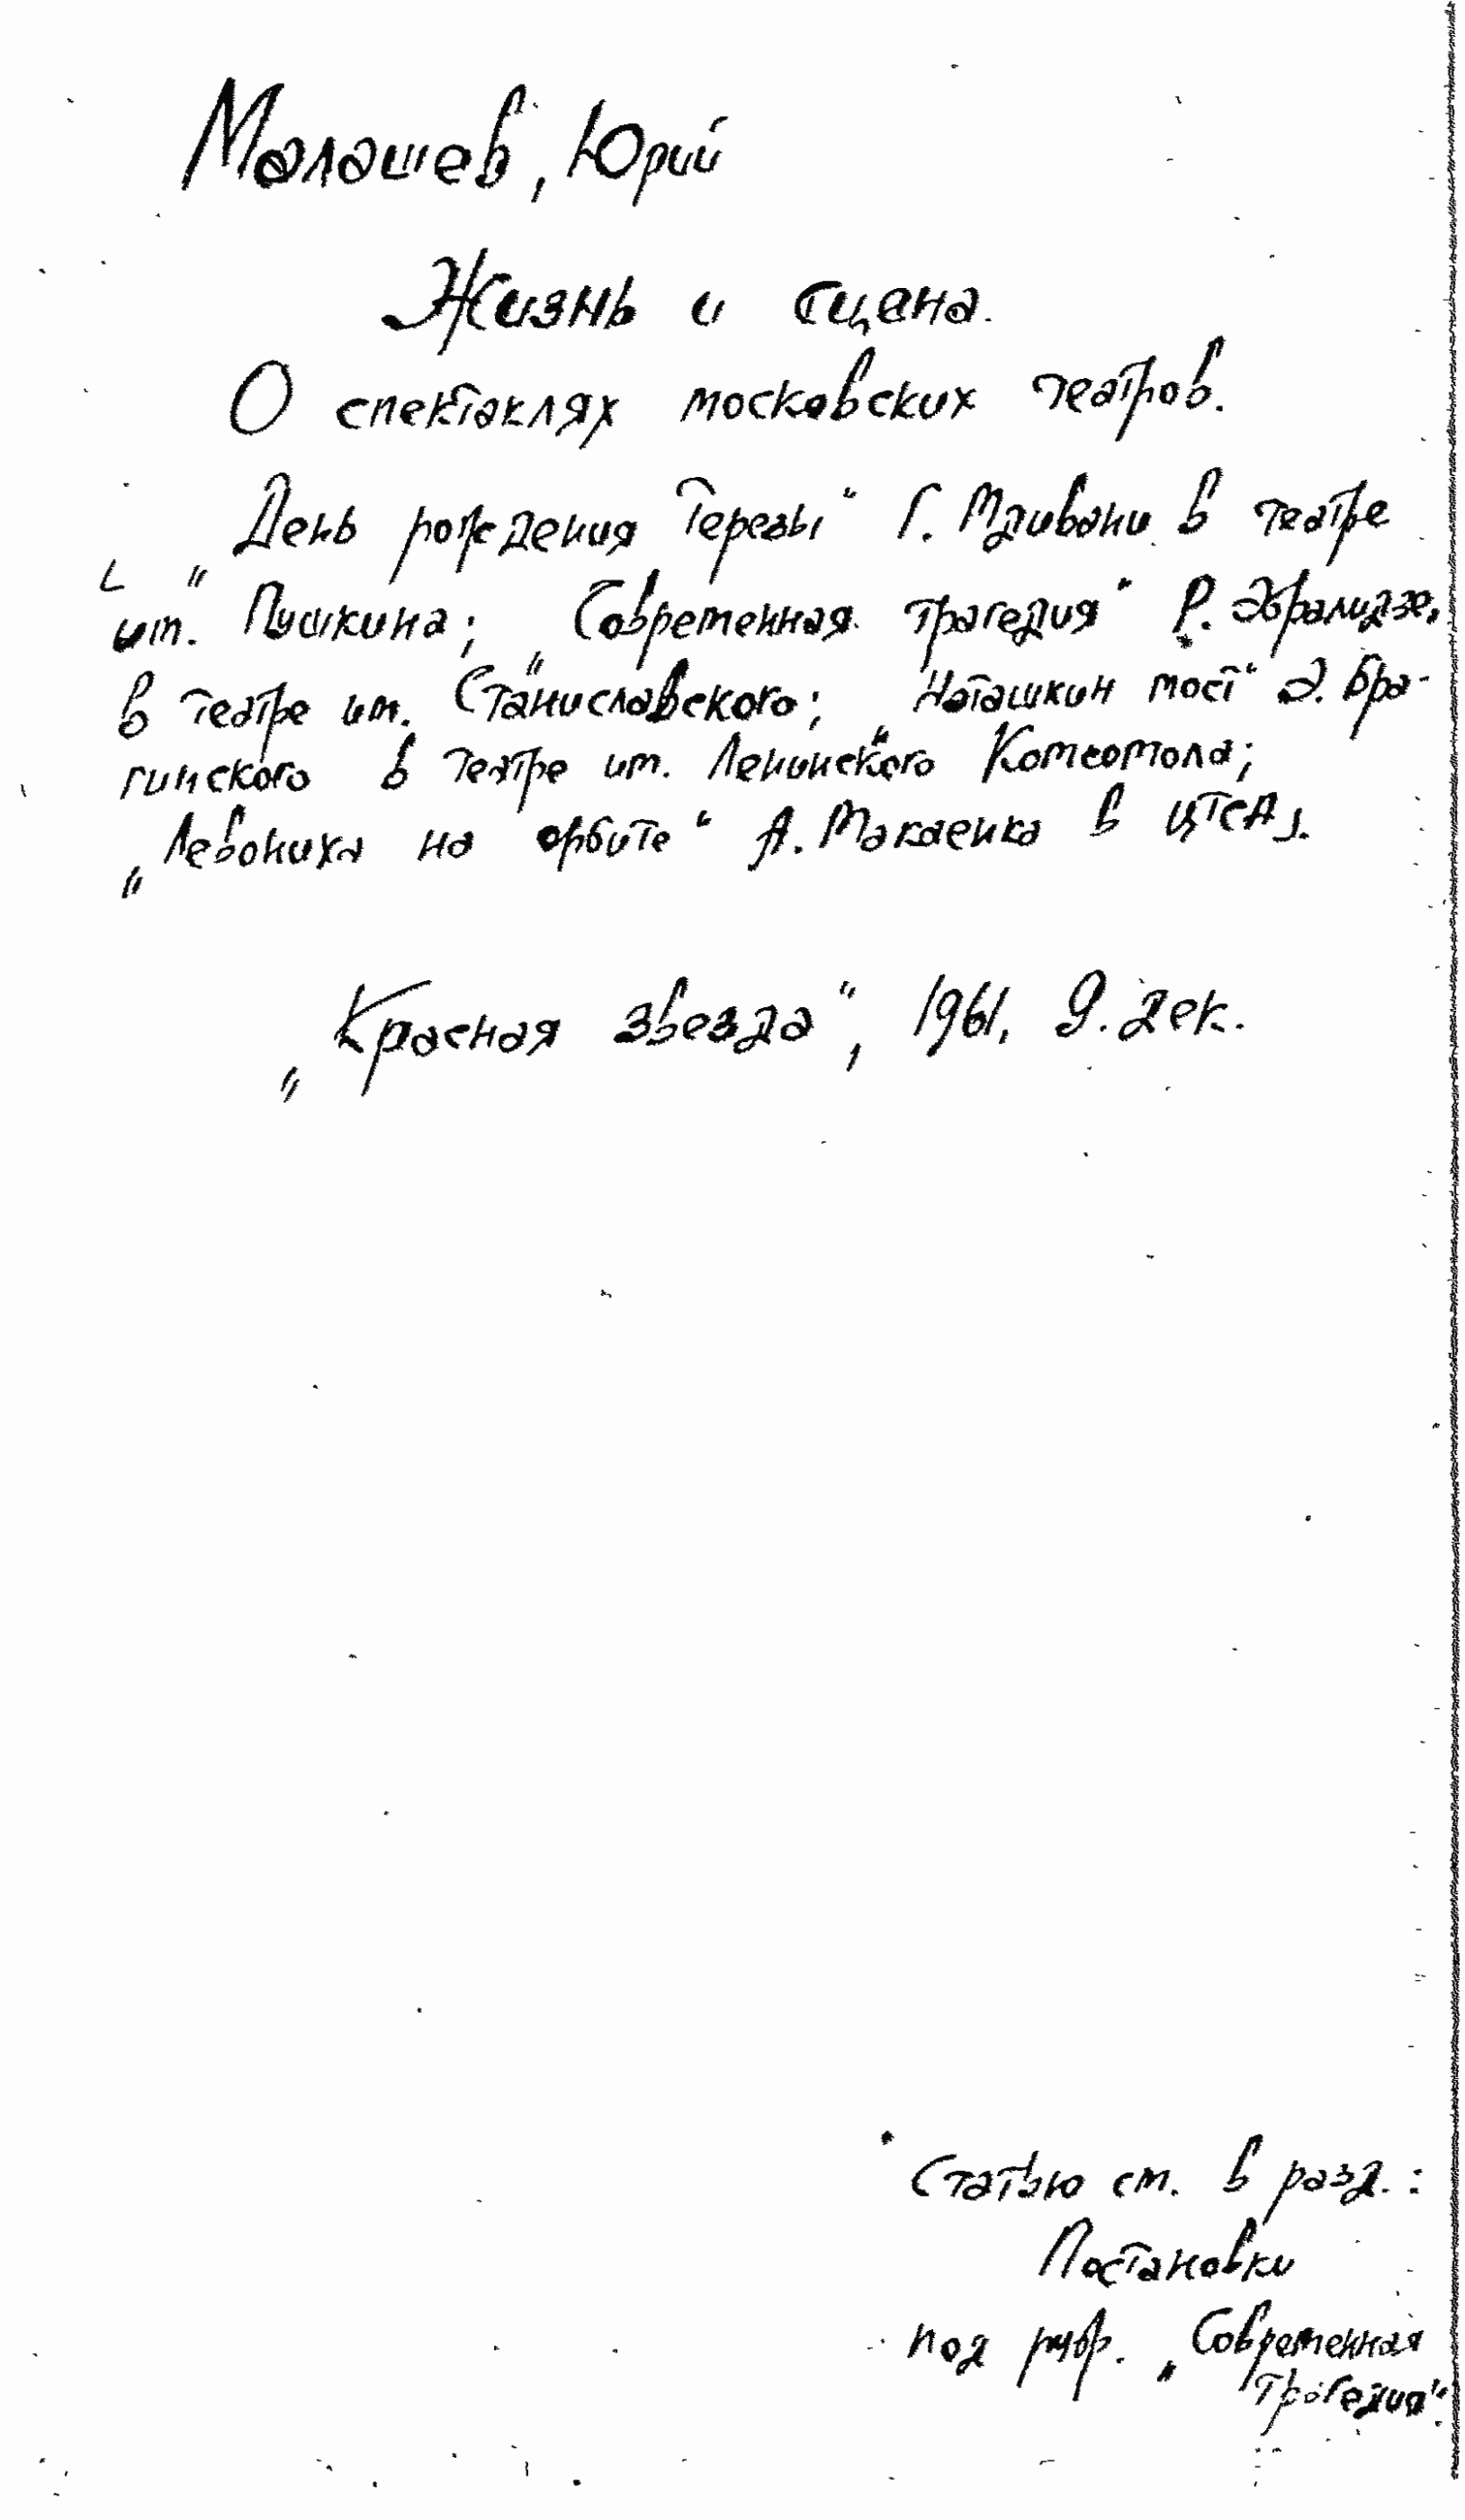 Малашев, Юрий
Жизнь и сцена.
О спектаклях московских театров.
[ „День рождения Терезы“ Г. Мдивани в театре
им. Пушкина; „Современная трагедия“ Р. Эбралидзе,
в театре им. Станиславского; „Наташкин мост“ Э. Бра-
гинского в театре им. Ленинского Комсомола;
„Левониха на орбите“ А. Макаенка в ЦТСА].
„Красная звезда“, 1961, 9. дек.
Статью см. в разд.:
Постановки
под рубр. „Современная
трагедия“.